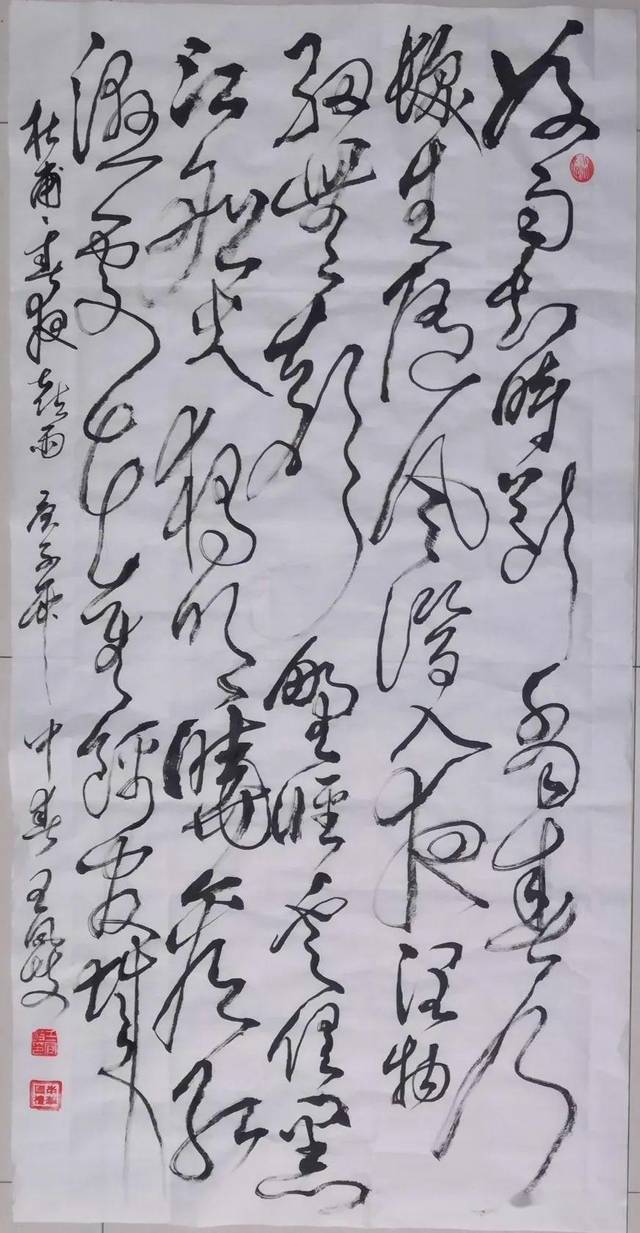 好雨知時節當春乃
發生隨風潛入夜潤物
細無聲野徑雲俱黑
江船火獨明曉看紅
濕處花重錦官城
杜甫、春夜喜雨 庚子年 中春 王